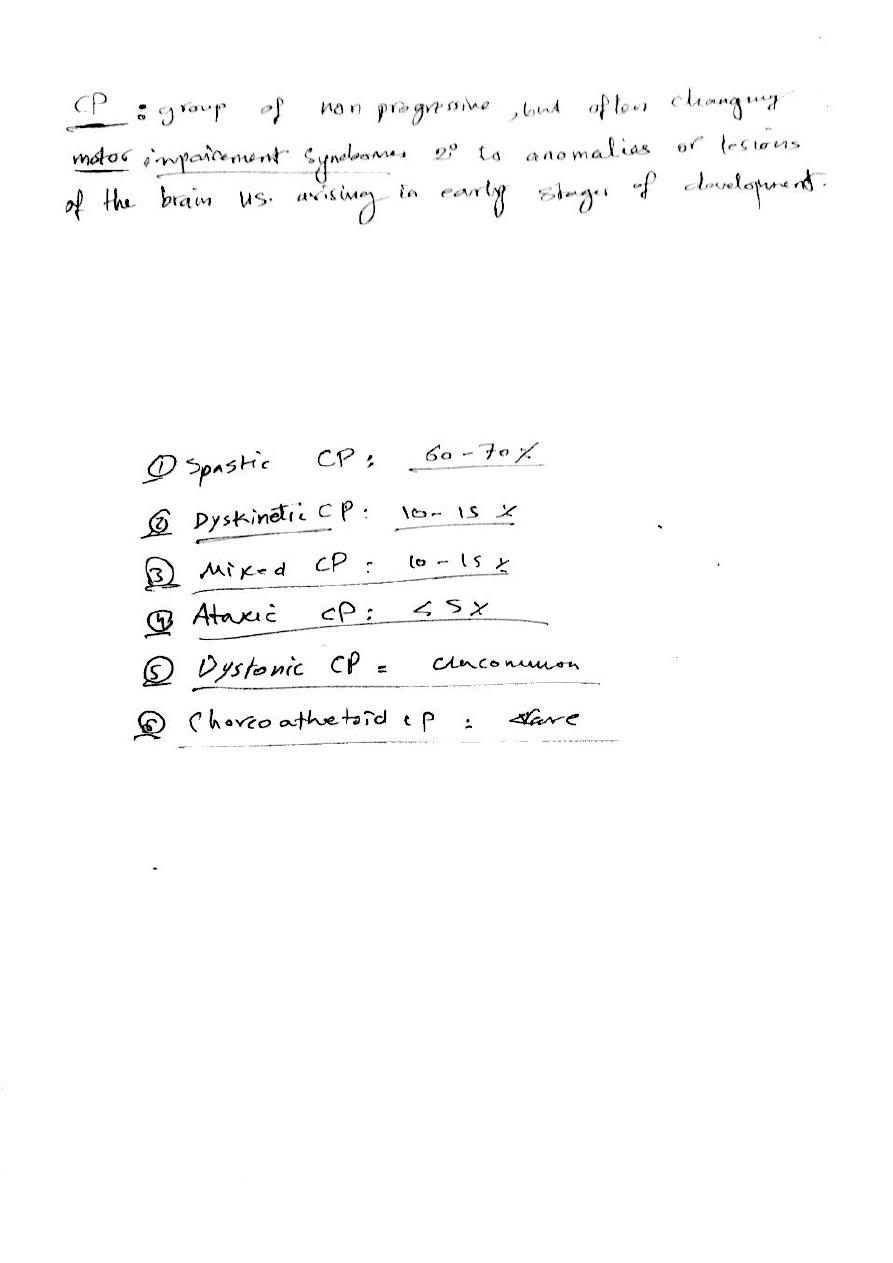 CP : group of non progressive, but often changing
motor impairement Syndromes 2° to anomalies or lesions
of the brain us. arising in early stages of development.
① Spastic CP : 60-70%
② Dyskinetic CP : 10-15 %
③ Mixed CP : 10-15 %
④ Ataxic CP : < 5 %
⑤ Dystonic CP = Uncommon
⑥ Choreoathetoid CP : rare